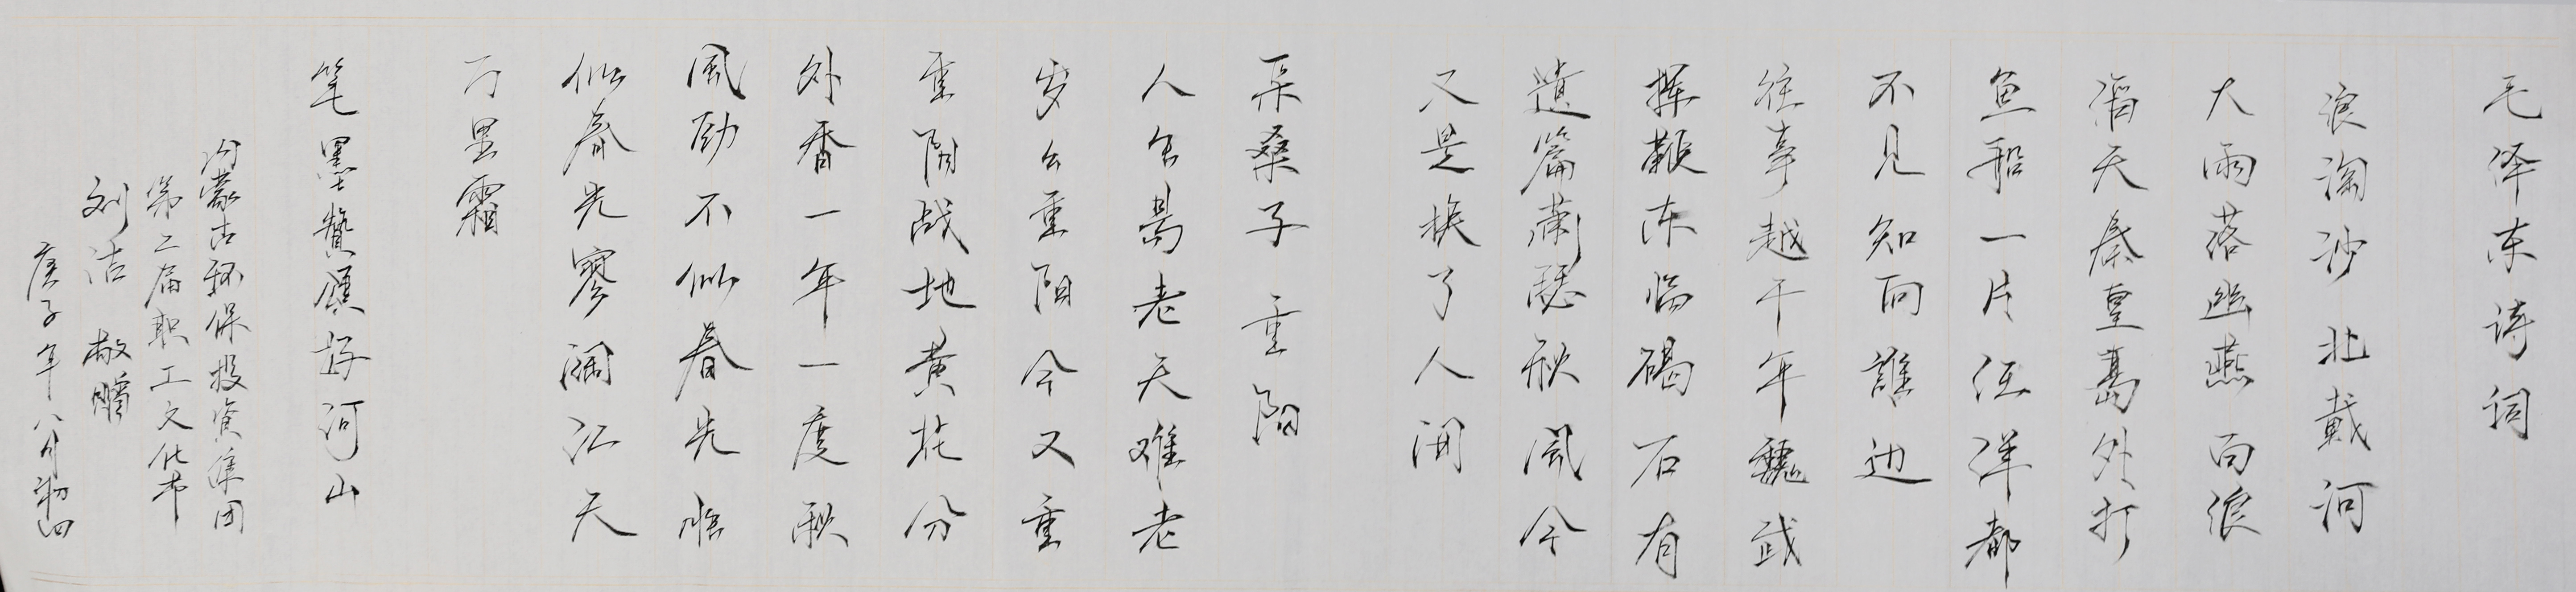 毛泽东诗词
浪淘沙 北戴河
大雨落幽燕 白浪
滔天秦皇島外打
鱼船一片汪洋都
不见知向誰边
往事越千年魏武
挥鞭东临碣石有
遗篇萧瑟秋風今
又是换了人间
采桑子 重阳
人生易老天难老
岁岁重阳今又重
重阳战地黄花分
外香一年一度秋
風劲不似春光勝
似春光寥阔江天
万里霜
笔墨贊頌好河山
内蒙古环保投资集团
第二届职工文化节
刘洁 敬贈
庚子年八月初四